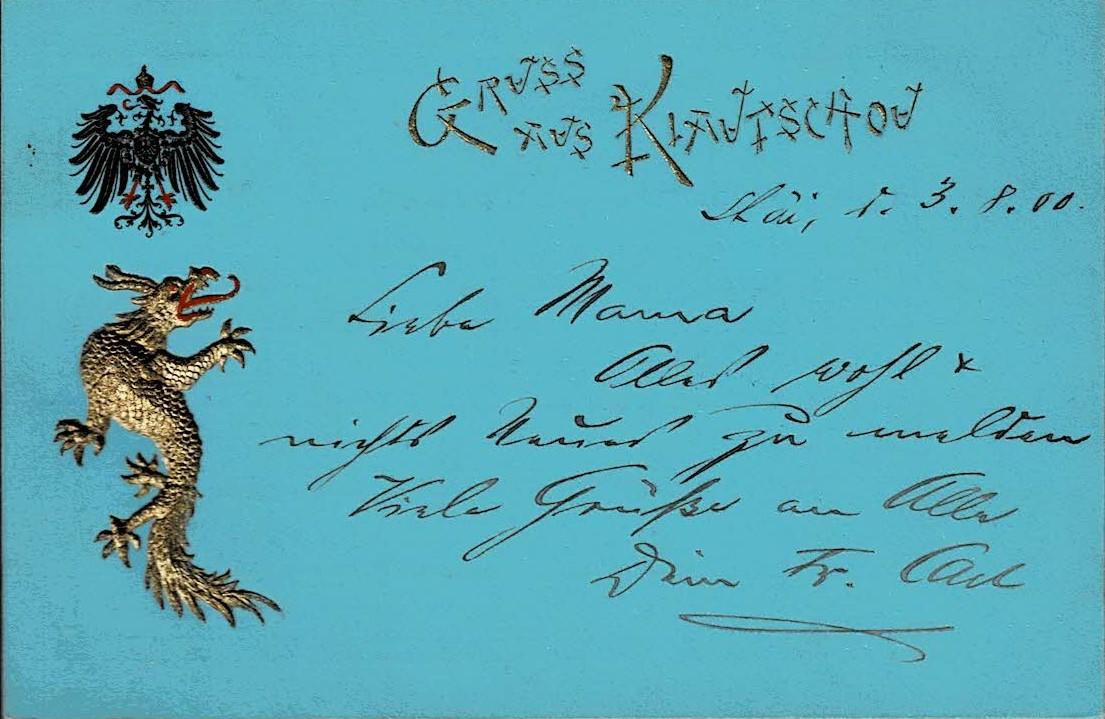 GRUSS
AUS KIAUTSCHOU
d. 3.8.00.
Liebe Mama
Alles wohl &
nichts Neues zu melden
Viele Grüße an Alle
Dein Fr. Carl